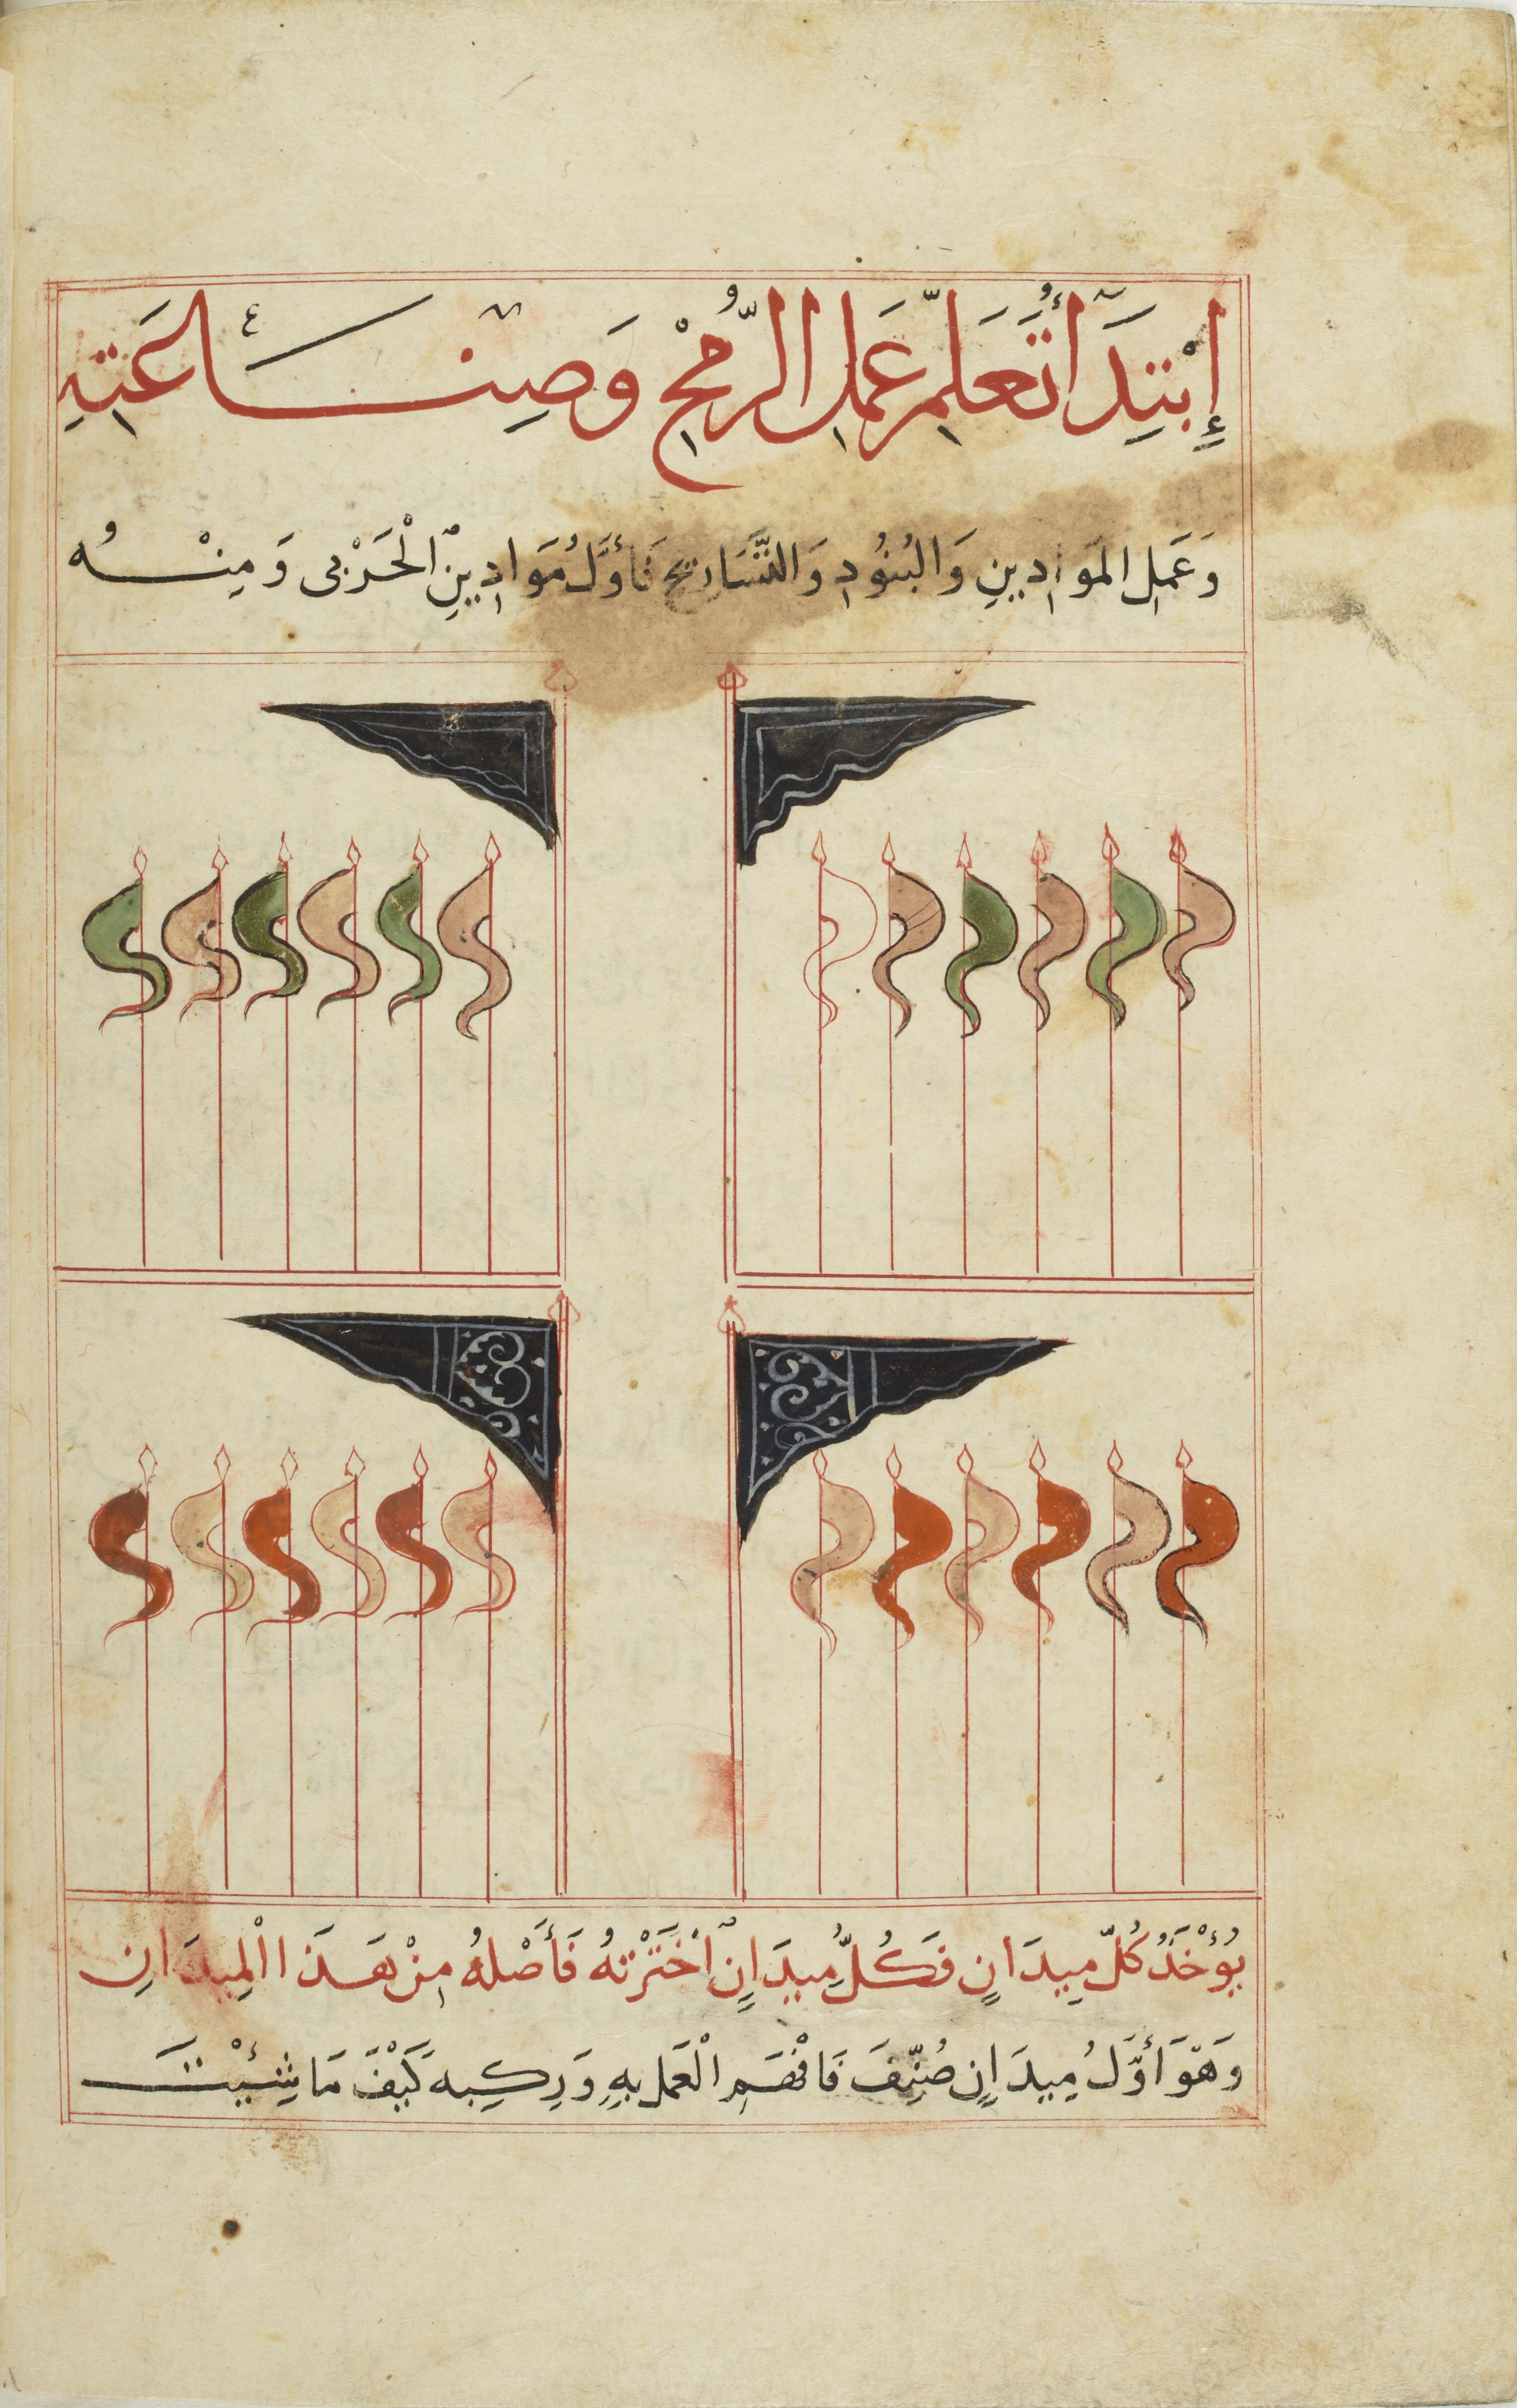 إِبْتِدَآ أَتُعَلِّمِ عَمَلِ الرُّمْحِ وَصِنَاعَتِهِ
وَعَمَلِ المَوَادِينِ وَالبُنُودِ وَالتَّسَارِيحِ فَأَوَّلُ مَوَادِينِ الْحَرْبِى وَمِنْهُ
يُؤْخَذُ كُلُّ مِيدَانٍ فَكُلُّ مِيدَانٍ اخْتَرْتَهُ فَأَصْلُهُ مِنْ هَذَا الْمِيدَانِ
وَهُوَ أَوَّلُ مِيدَانٍ صُنِّفَ فَافْهَمِ الْعَمَلَ بِهِ وَرَكِبِهِ كَيْفَ مَا شِئْتَ